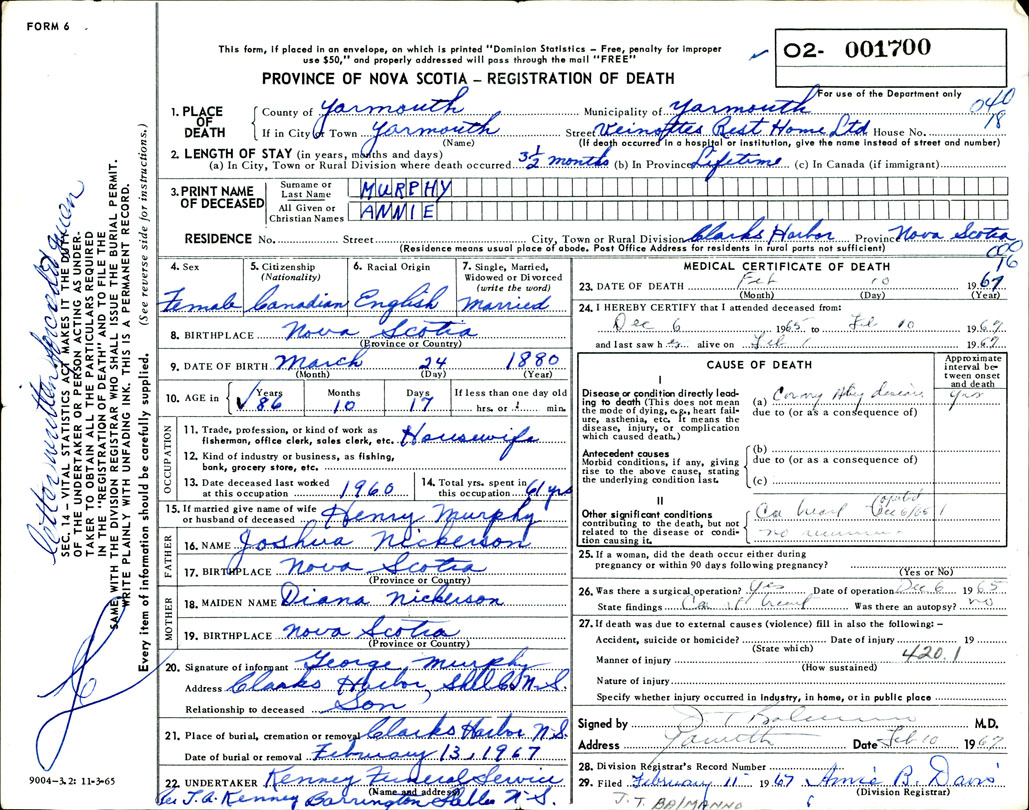 FORM 6
This form, if placed in an envelope, on which is printed "Dominion Statistics – Free, penalty for improper
use $50," and properly addressed will pass through the mail "FREE"
O2- 001700
PROVINCE OF NOVA SCOTIA – REGISTRATION OF DEATH
For use of the Department only
040
18
1. PLACE OF DEATH
County of Yarmouth Municipality of Yarmouth
If in City or Town Yarmouth Street Veinottes Rest Home Ltd House No.
(Name) (If death occurred in a hospital or institution, give the name instead of street and number)
2. LENGTH OF STAY (in years, months and days)
(a) In City, Town or Rural Division where death occurred 3 1/2 months (b) In Province Lifetime (c) In Canada (if immigrant)
3. PRINT NAME OF DECEASED
Surname or Last Name MURPHY
All Given or Christian Names ANNIE
RESIDENCE No. Street City, Town or Rural Division Clarks Harbor Province Nova Scotia
(Residence means usual place of abode. Post Office Address for residents in rural ports not sufficient)
16
4. Sex Female
5. Citizenship (Nationality) Canadian
6. Racial Origin English
7. Single, Married, Widowed or Divorced (write the word) Married
8. BIRTHPLACE Nova Scotia
(Province or Country)
9. DATE OF BIRTH March 24 1880
(Month) (Day) (Year)
10. AGE in Years Months Days If less than one day old
86 10 17 hrs. or min.
OCCUPATION
11. Trade, profession, or kind of work as
fisherman, office clerk, sales clerk, etc. Housewife
12. Kind of industry or business, as fishing,
bank, grocery store, etc.
13. Date deceased last worked
at this occupation 1960
14. Total yrs. spent in
this occupation 61 yrs
15. If married give name of wife
or husband of deceased Henry Murphy
FATHER
16. NAME Joshua Nickerson
17. BIRTHPLACE Nova Scotia
(Province or Country)
MOTHER
18. MAIDEN NAME Diana Nickerson
19. BIRTHPLACE Nova Scotia
(Province or Country)
20. Signature of informant George Murphy
Address Clarks Harbor, Shel Co N.S.
Relationship to deceased Son
21. Place of burial, cremation or removal Clarks Harbor N.S.
Date of burial or removal February 13, 1967
22. UNDERTAKER Kenney Funeral Service
(Name and address)
Per J.A. Kenney Barrington N.S.
MEDICAL CERTIFICATE OF DEATH
23. DATE OF DEATH Feb 10 1967
(Month) (Day) (Year)
24. I HEREBY CERTIFY that I attended deceased from:
Dec 6 1965 to Feb 10 1967
and last saw h alive on Feb 1 1967
CAUSE OF DEATH
Approximate interval between onset and death
I
Disease or condition directly leading to death (This does not mean the mode of dying, e.g., heart failure, asthenia, etc. It means the disease, injury, or complication which caused death.)
(a) disease yrs
due to (or as a consequence of)
Antecedent causes
Morbid conditions, if any, giving rise to the above cause, stating the underlying condition last.
(b)
due to (or as a consequence of)
(c)
II
Other significant conditions
contributing to the death, but not related to the disease or condition causing it.
Ca Dec 6/65
no
25. If a woman, did the death occur either during
pregnancy or within 90 days following pregnancy?
(Yes or No)
26. Was there a surgical operation? Yes Date of operation Dec 6 1965
State findings Ca Was there an autopsy? no
27. If death was due to external causes (violence) fill in also the following: –
Accident, suicide or homicide? Date of injury 19
(State which)
Manner of injury 420.1
(How sustained)
Nature of injury
Specify whether injury occurred in industry, in home, or in public place
Signed by M.D.
Address Yarmouth Date Feb 10 1967
28. Division Registrar's Record Number
29. Filed February 11 1967 Annie B. Davis
(Division Registrar)
J.T. BALMANNO
9004-3.2: 11-3-65
SEC. 14 – VITAL STATISTICS ACT MAKES IT THE DUTY
OF THE UNDERTAKER OR PERSON ACTING AS UNDER-
TAKER TO OBTAIN ALL THE PARTICULARS REQUIRED
IN THE "REGISTRATION OF DEATH" AND TO FILE THE
SAME WITH THE DIVISION REGISTRAR WHO SHALL ISSUE THE BURIAL PERMIT.
WRITE PLAINLY WITH UNFADING INK. THIS IS A PERMANENT RECORD.
Every item of information should be carefully supplied. (See reverse side for instructions.)